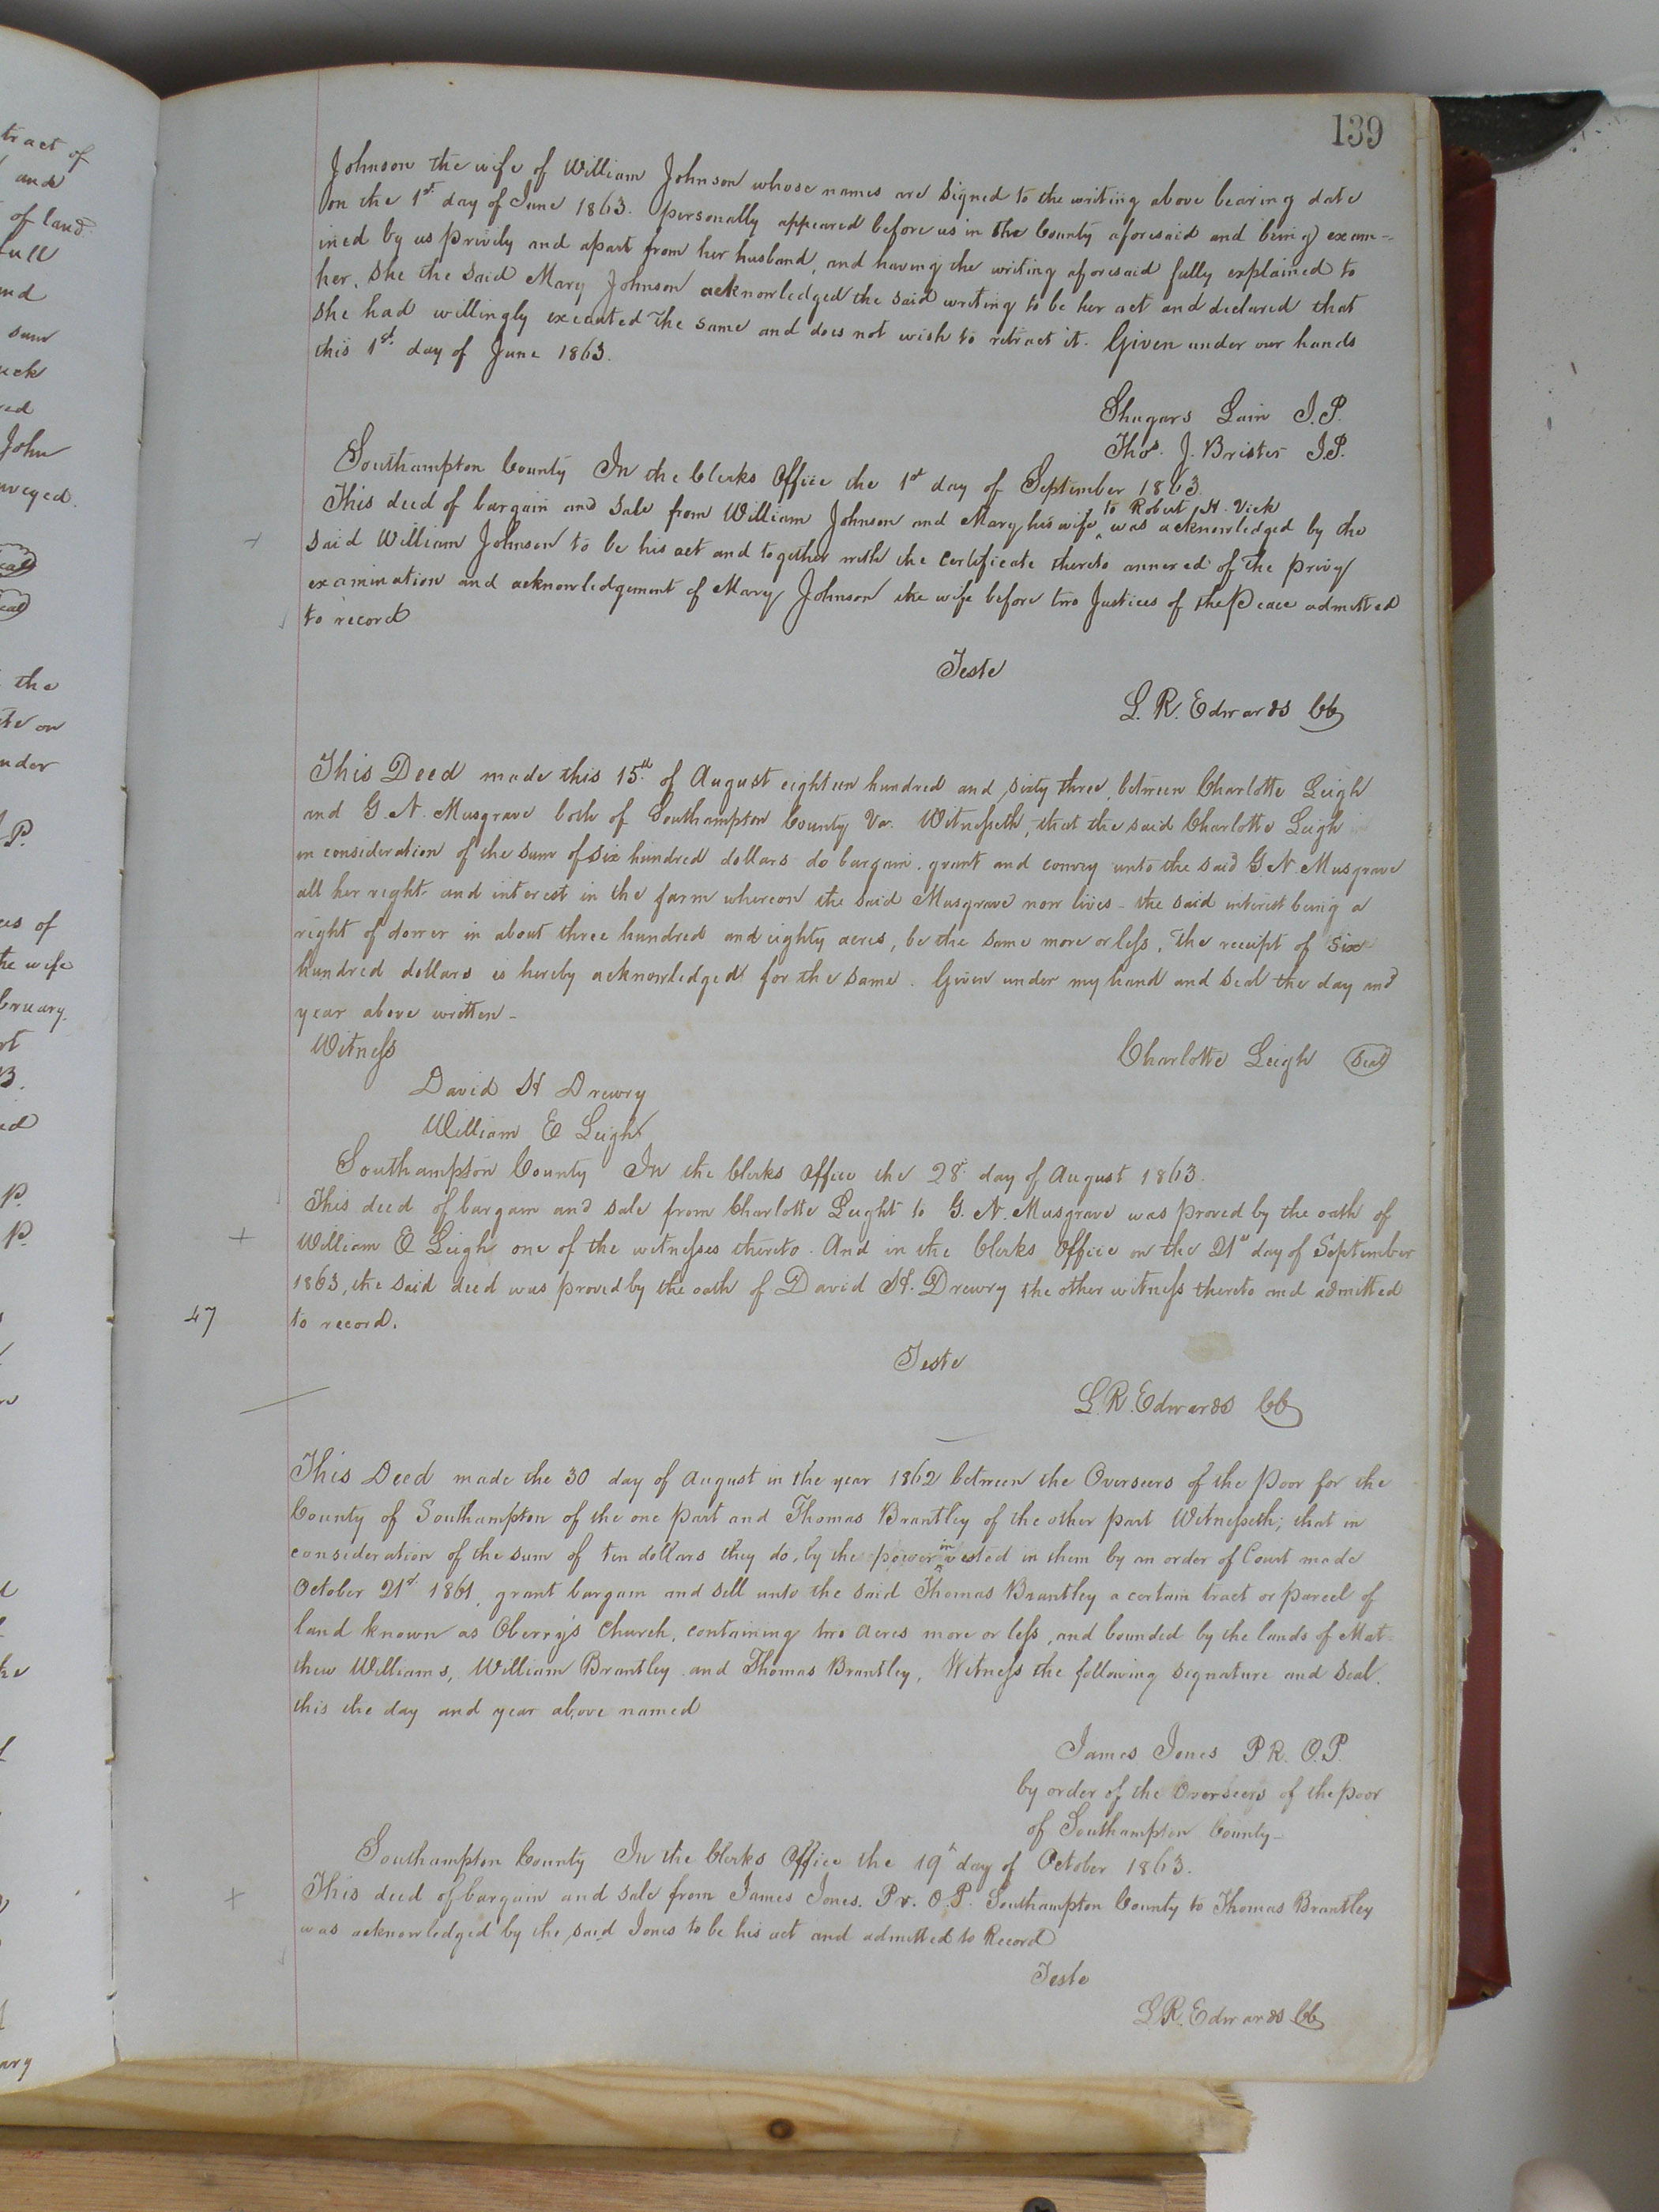 139
Johnson the wife of William Johnson whose names are signed to the writing above bearing date
on the 1st day of June 1863. personally appeared before us in the County aforesaid and being exam-
ined by us privily and apart from her husband, and having the writing aforesaid fully explained to
her, she the said Mary Johnson acknowledged the said writing to be her act and declared that
she had willingly executed the same and does not wish to retract it. Given under our hands
this 1st day of June 1863.
Shugars Lain J.P.
Thos. J. Brister J.P.
Southampton County In the Clerks Office the 1st day of September 1863.
to Robert H. Vick
This deed of bargain and sale from William Johnson and Mary his wife ‸ was acknowledged by the
said William Johnson to be his act and together with the certificate thereto annexed of the privy
examination and acknowledgement of Mary Johnson the wife before two Justices of the Peace admitted
to record
Teste
L. R. Edwards CC
This Deed made this 15th of August eighteen hundred and sixty three, between Charlotte Leigh
and G. N. Musgrave both of Southampton County Va. Witnesseth, that the said Charlotte Leigh
in consideration of the sum of six hundred dollars do bargain, grant and convey unto the said G N. Musgrave
all her right and interest in the farm whereon the said Musgrave now lives - the said interest being a
right of dower in about three hundred and eighty acres, be the same more or less, The receipt of six
hundred dollars is hereby acknowledged for the same. Given under my hand and seal the day and
year above written -
Witness
Charlotte Leigh Seal
David H Drewry
William E Leigh
Southampton County In the Clerks Office the 28 day of August 1863.
This deed of bargain and sale from Charlotte Leight to G. N. Musgrave was proved by the oath of
+ William E Leigh one of the witnesses thereto. And in the Clerks Office on the 21st day of September
1863, the said deed was proved by the oath of David H. Drewry the other witness thereto and admitted
47 to record.
Teste
L. R. Edwards CC
This Deed made the 30 day of August in the year 1862 between the Overseers of the Poor for the
County of Southampton of the one part and Thomas Brantley of the other part Witnesseth; that in
consideration of the sum of ten dollars they do, by the power in vested in them by an order of Court made
October 21st 1861, grant bargain and sell unto the said Thomas Brantley a certain tract or parcel of
land known as Oberry's Church, containing two acres more or less, and bounded by the lands of Mat-
thew Williams, William Brantley and Thomas Brantley, Witness the following signature and seal.
this the day and year above named
James Jones P R. O.P.
by order of the Overseers of the poor
of Southampton County -
Southampton County In the Clerks Office the 19th day of October 1863.
+ This deed of bargain and sale from James Jones. Pr. O.P. Southampton County to Thomas Brantley
was acknowledged by the said Jones to be his act and admitted to Record
Teste
L. R. Edwards CC